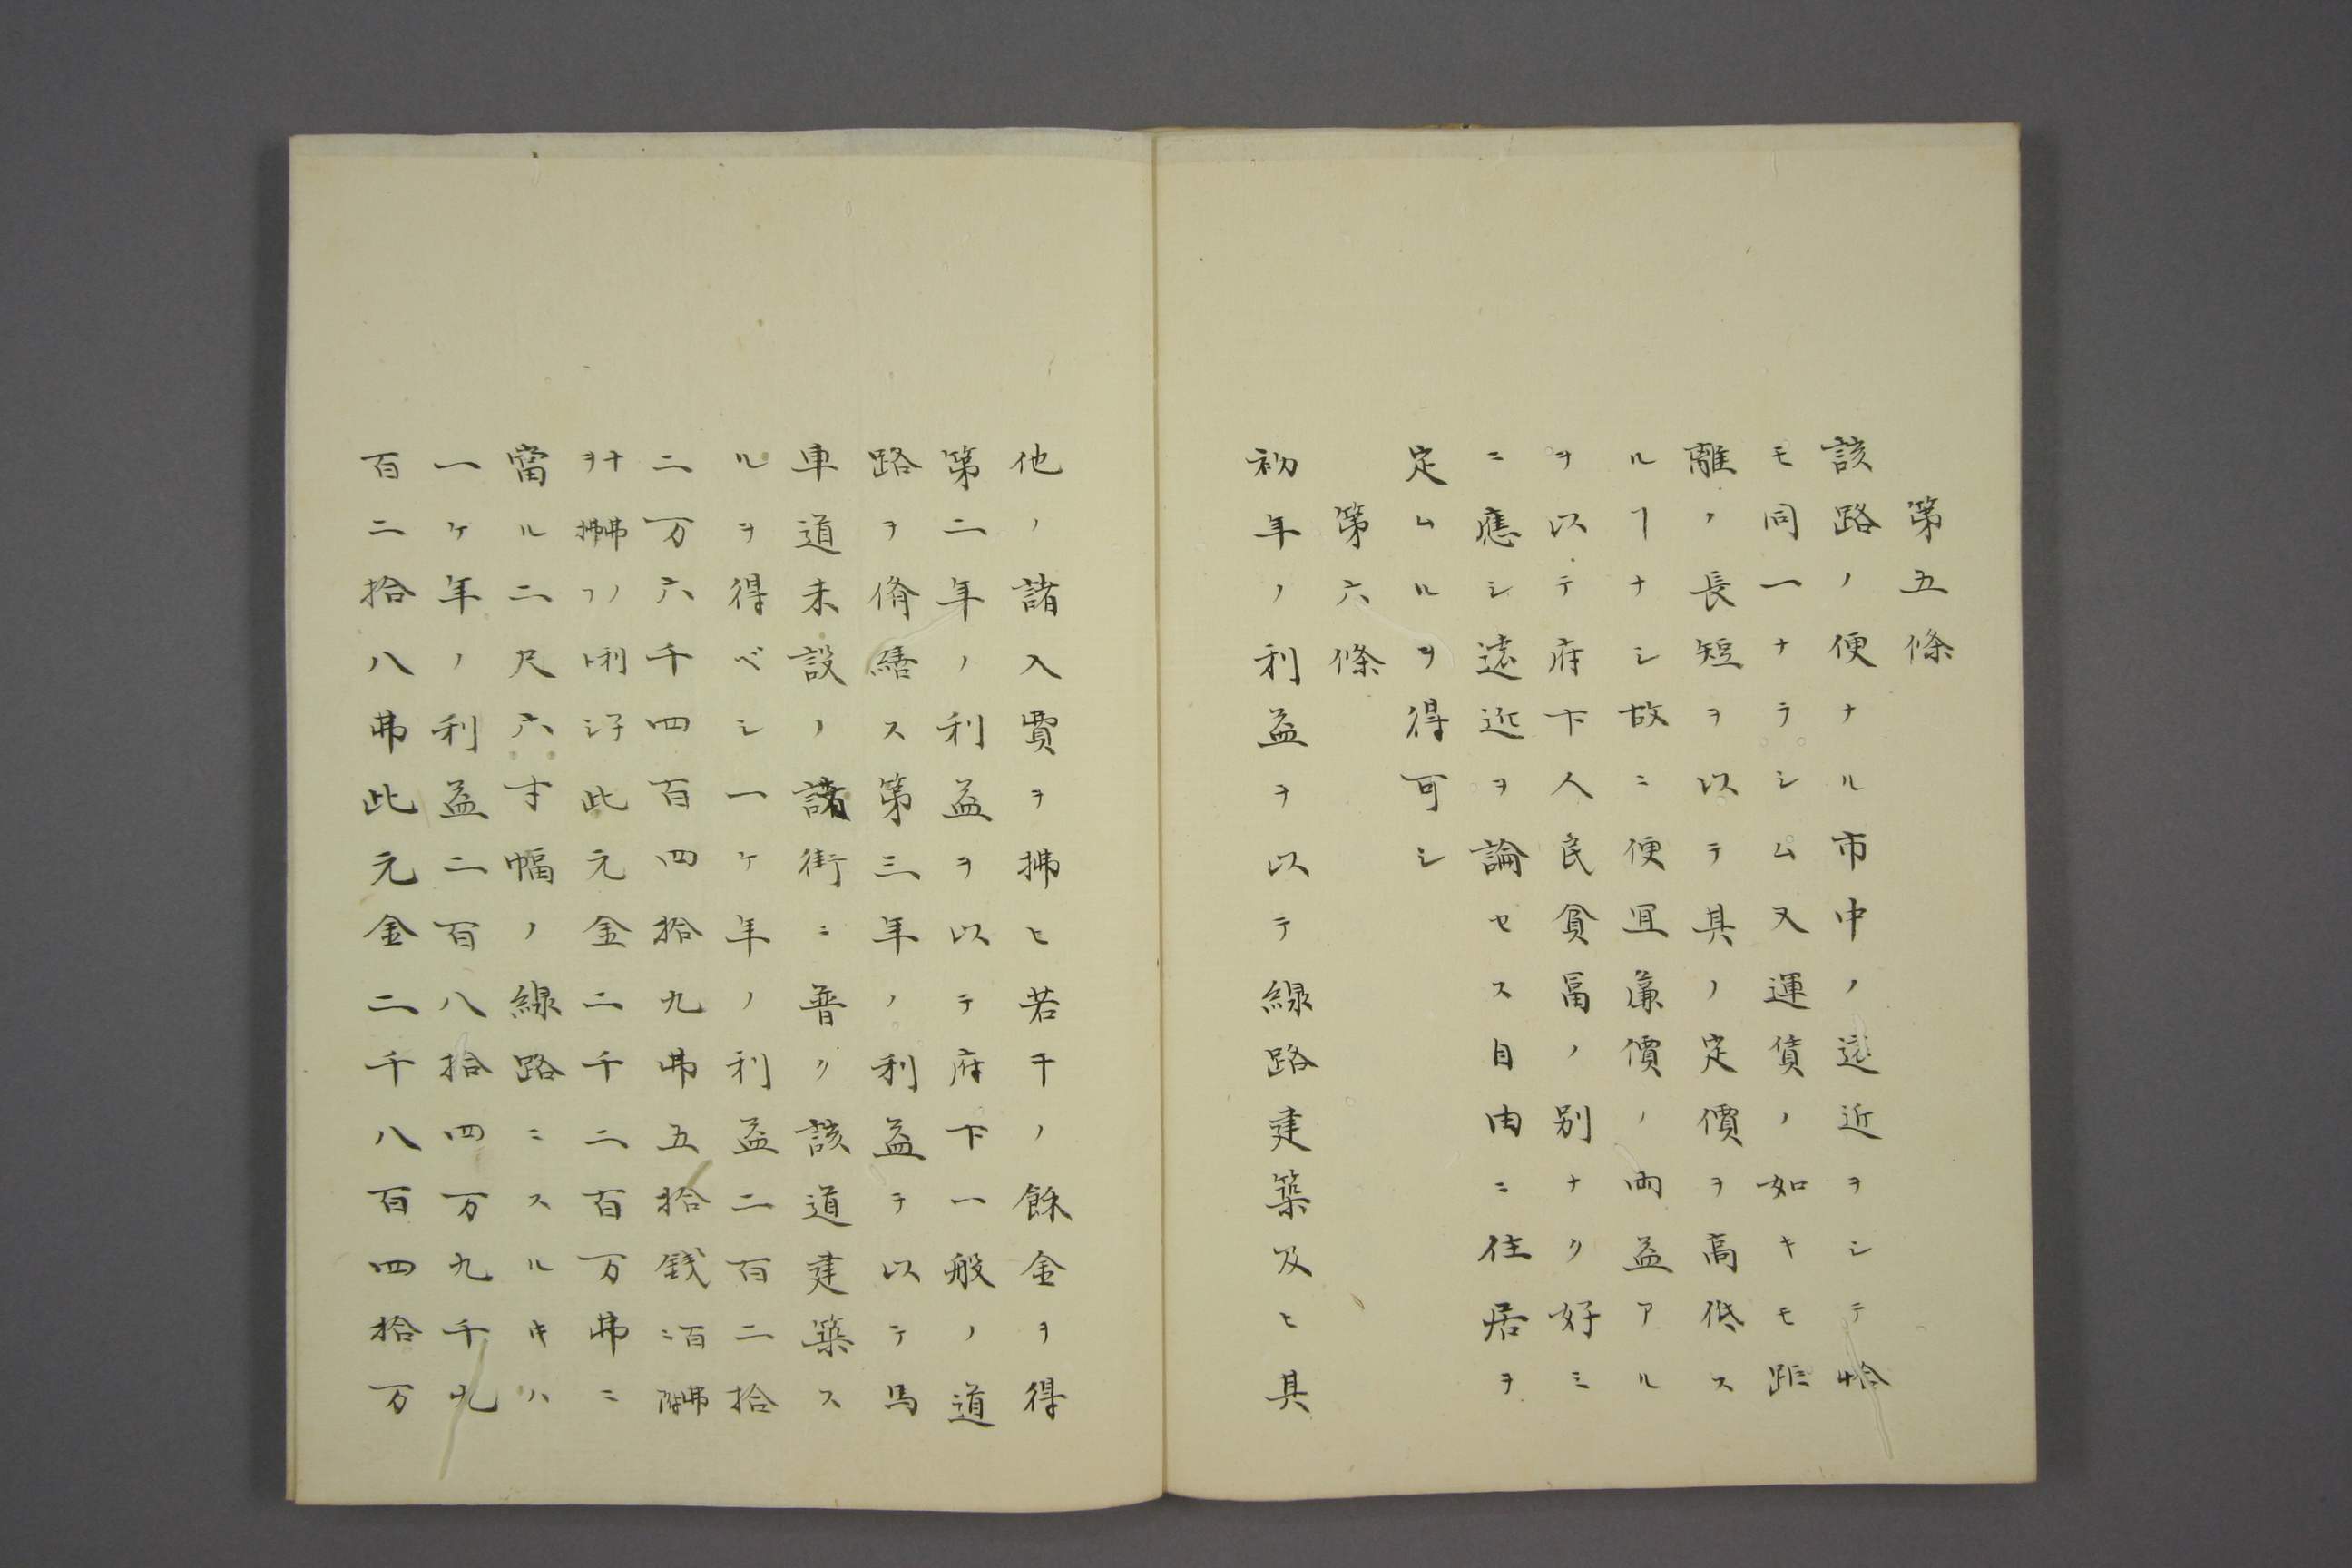 第五條
該路ノ便ナル市中ノ遠近ヲシテ恰
モ同一ナラシム又運賃ノ如キモ距
離ノ長短ヲ以テ其ノ定價ヲ高低ス
ルヿナシ故ニ便宜廉價ノ両益アル
ヲ以テ府下人民貧冨ノ別ナク好ミ
ニ應シ遠近ヲ論セス自由ニ住居ヲ
定ムルヲ得可シ
第六條
初年ノ利益ヲ以テ線路建築及ヒ其
他ノ諸入費ヲ拂ヒ若干ノ餘金ヲ得
第二年ノ利益ヲ以テ府下一般ノ道
路ヲ脩繕ス第三年ノ利益ヲ以テ馬
車道未設ノ諸街ニ普ク該道建築ス
ルヲ得ベシ一ケ年ノ利益二百二拾
二万六千四百四拾九弗五拾銭百弗ニ附
十弗ノ利子ヲ拂フトシ此元金二千二百万弗ニ
當ル二尺六寸幅ノ線路ニスルトキハ
一ケ年ノ利益二百八拾四万九千九
百二拾八弗此元金二千八百四拾万